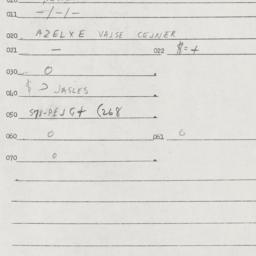 010
011 -/-/-
020 AZELXE VALSE CEJNER
021 — 022
030 0
040 JASLES
050 (268
060 0 061 0
070 0